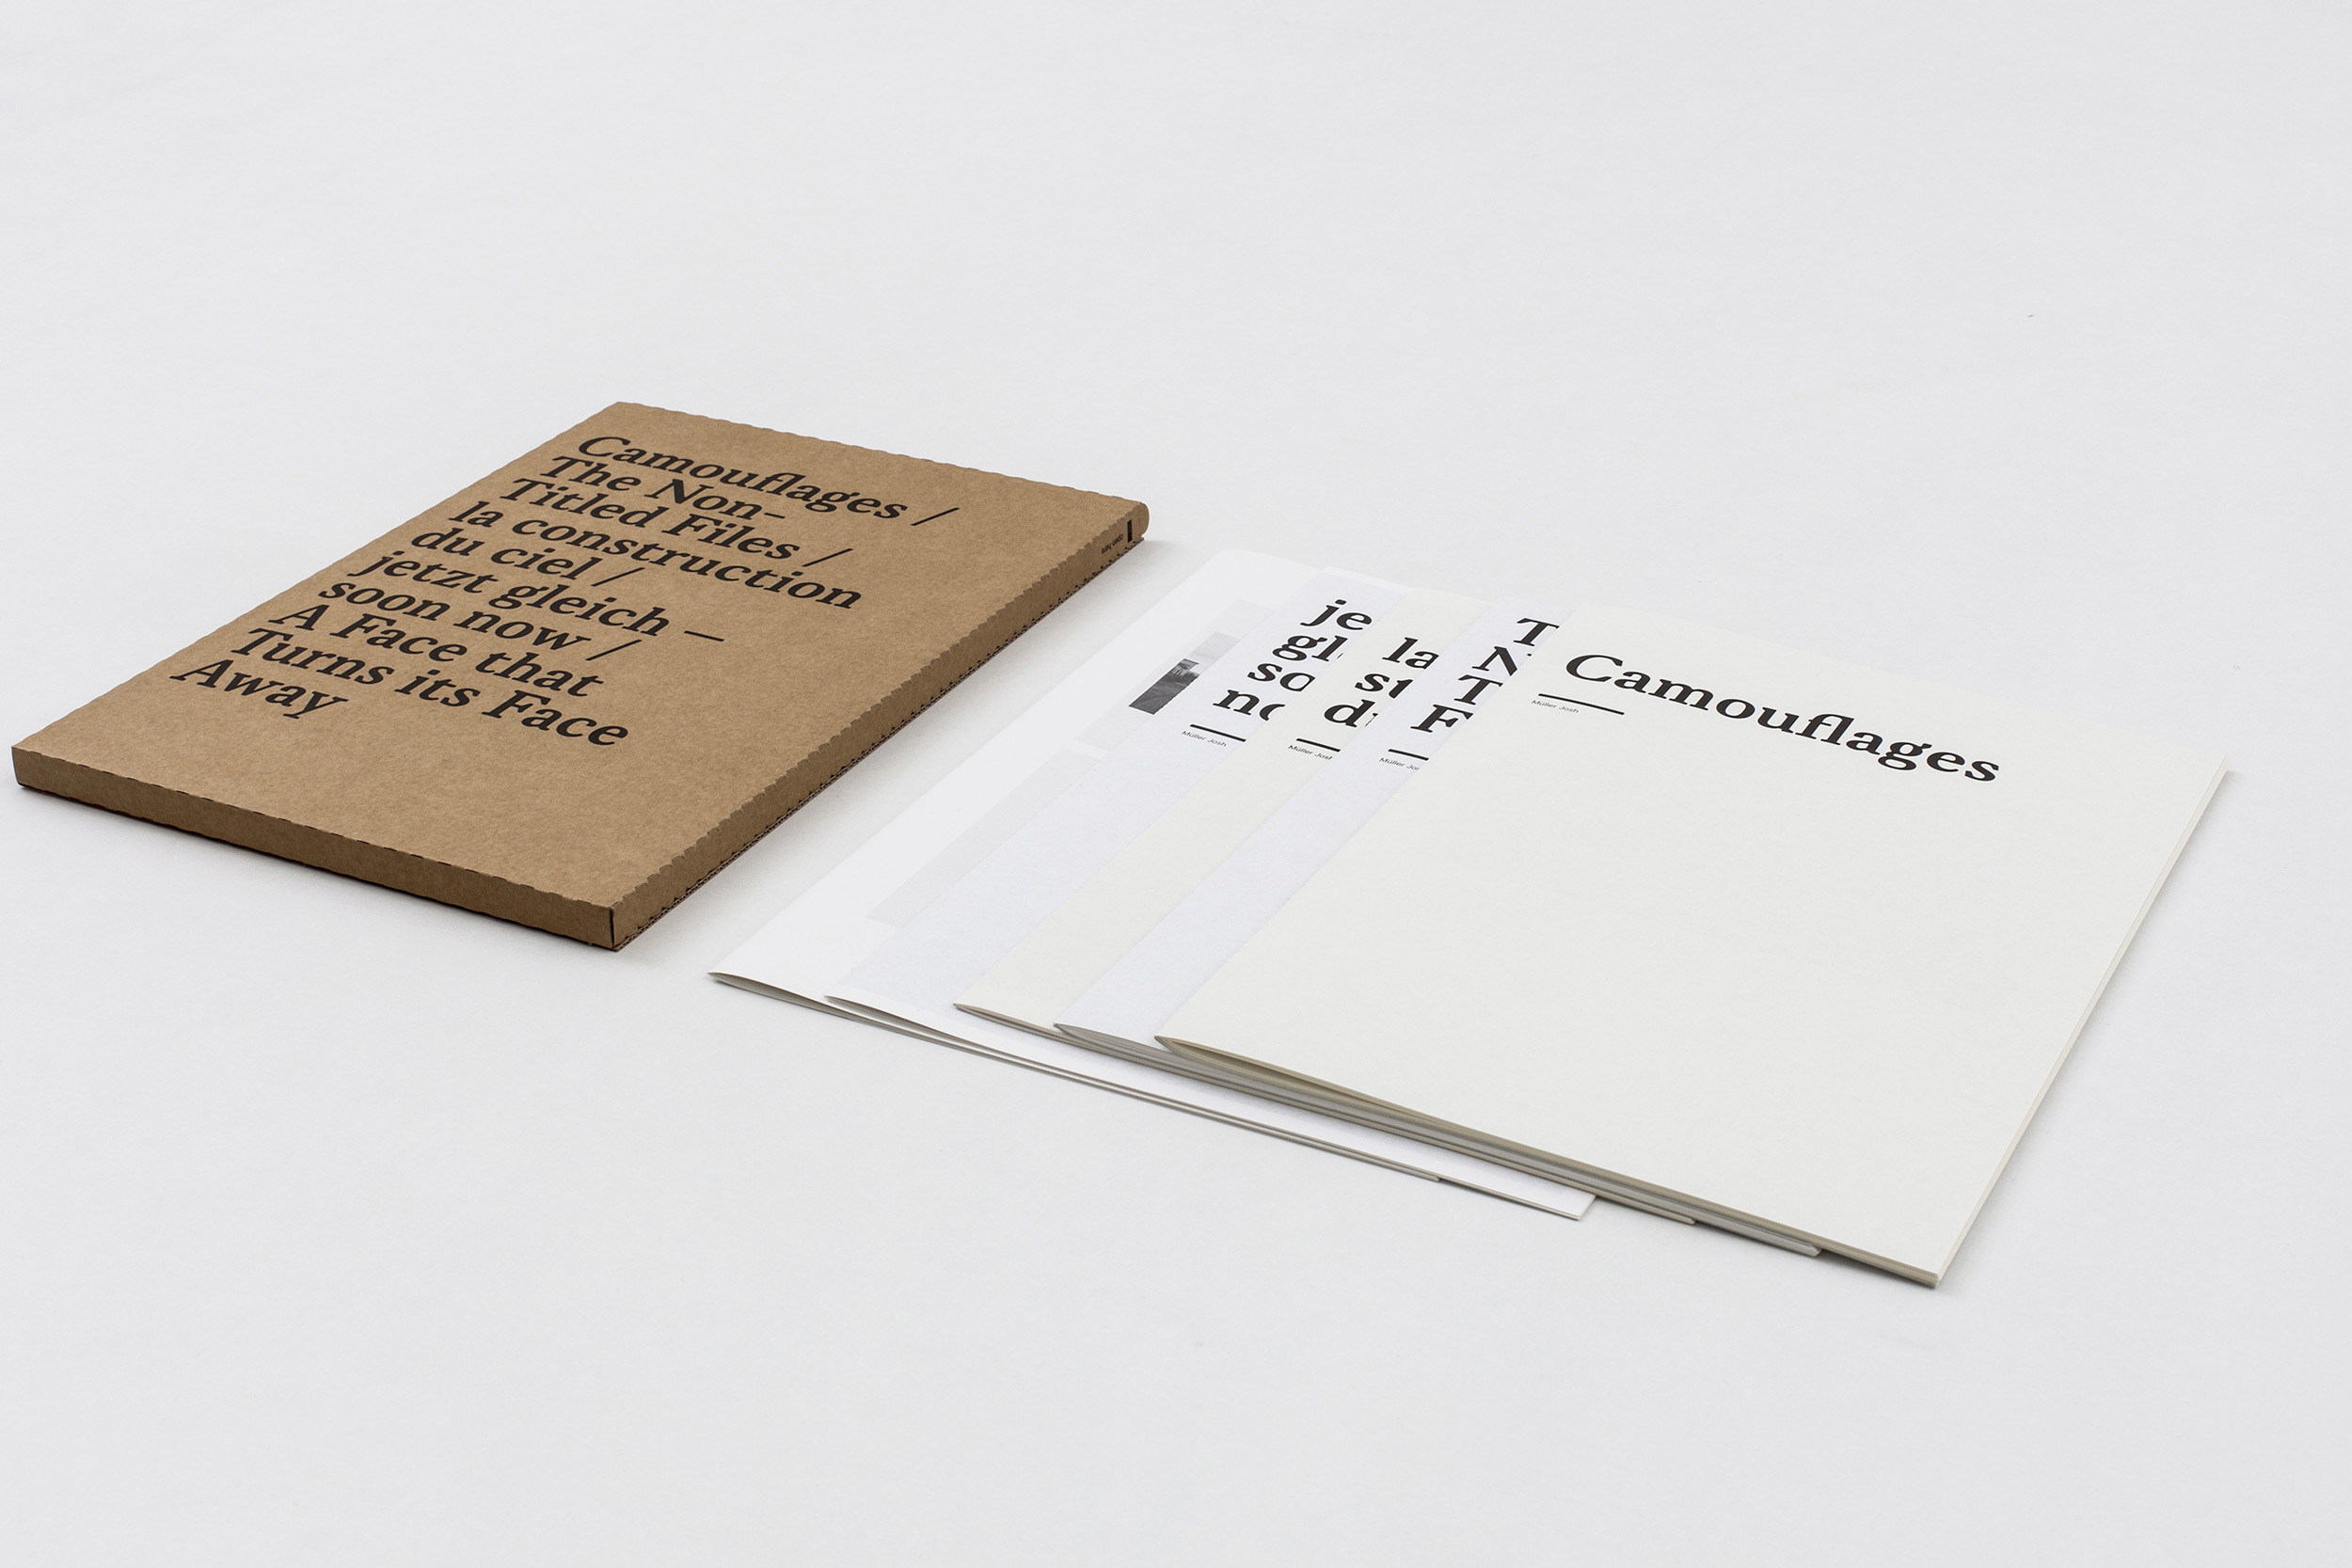 Camouflages /
The Non-
Titled Files /
la construction
du ciel /
jetzt gleich —
soon now /
A Face that
Turns its Face
Away
open here
je
gl
so
no
Müller Josh
la
st
d
Müller Josh
T
N
T
F
Müller Jo
Camouflages
Müller Josh